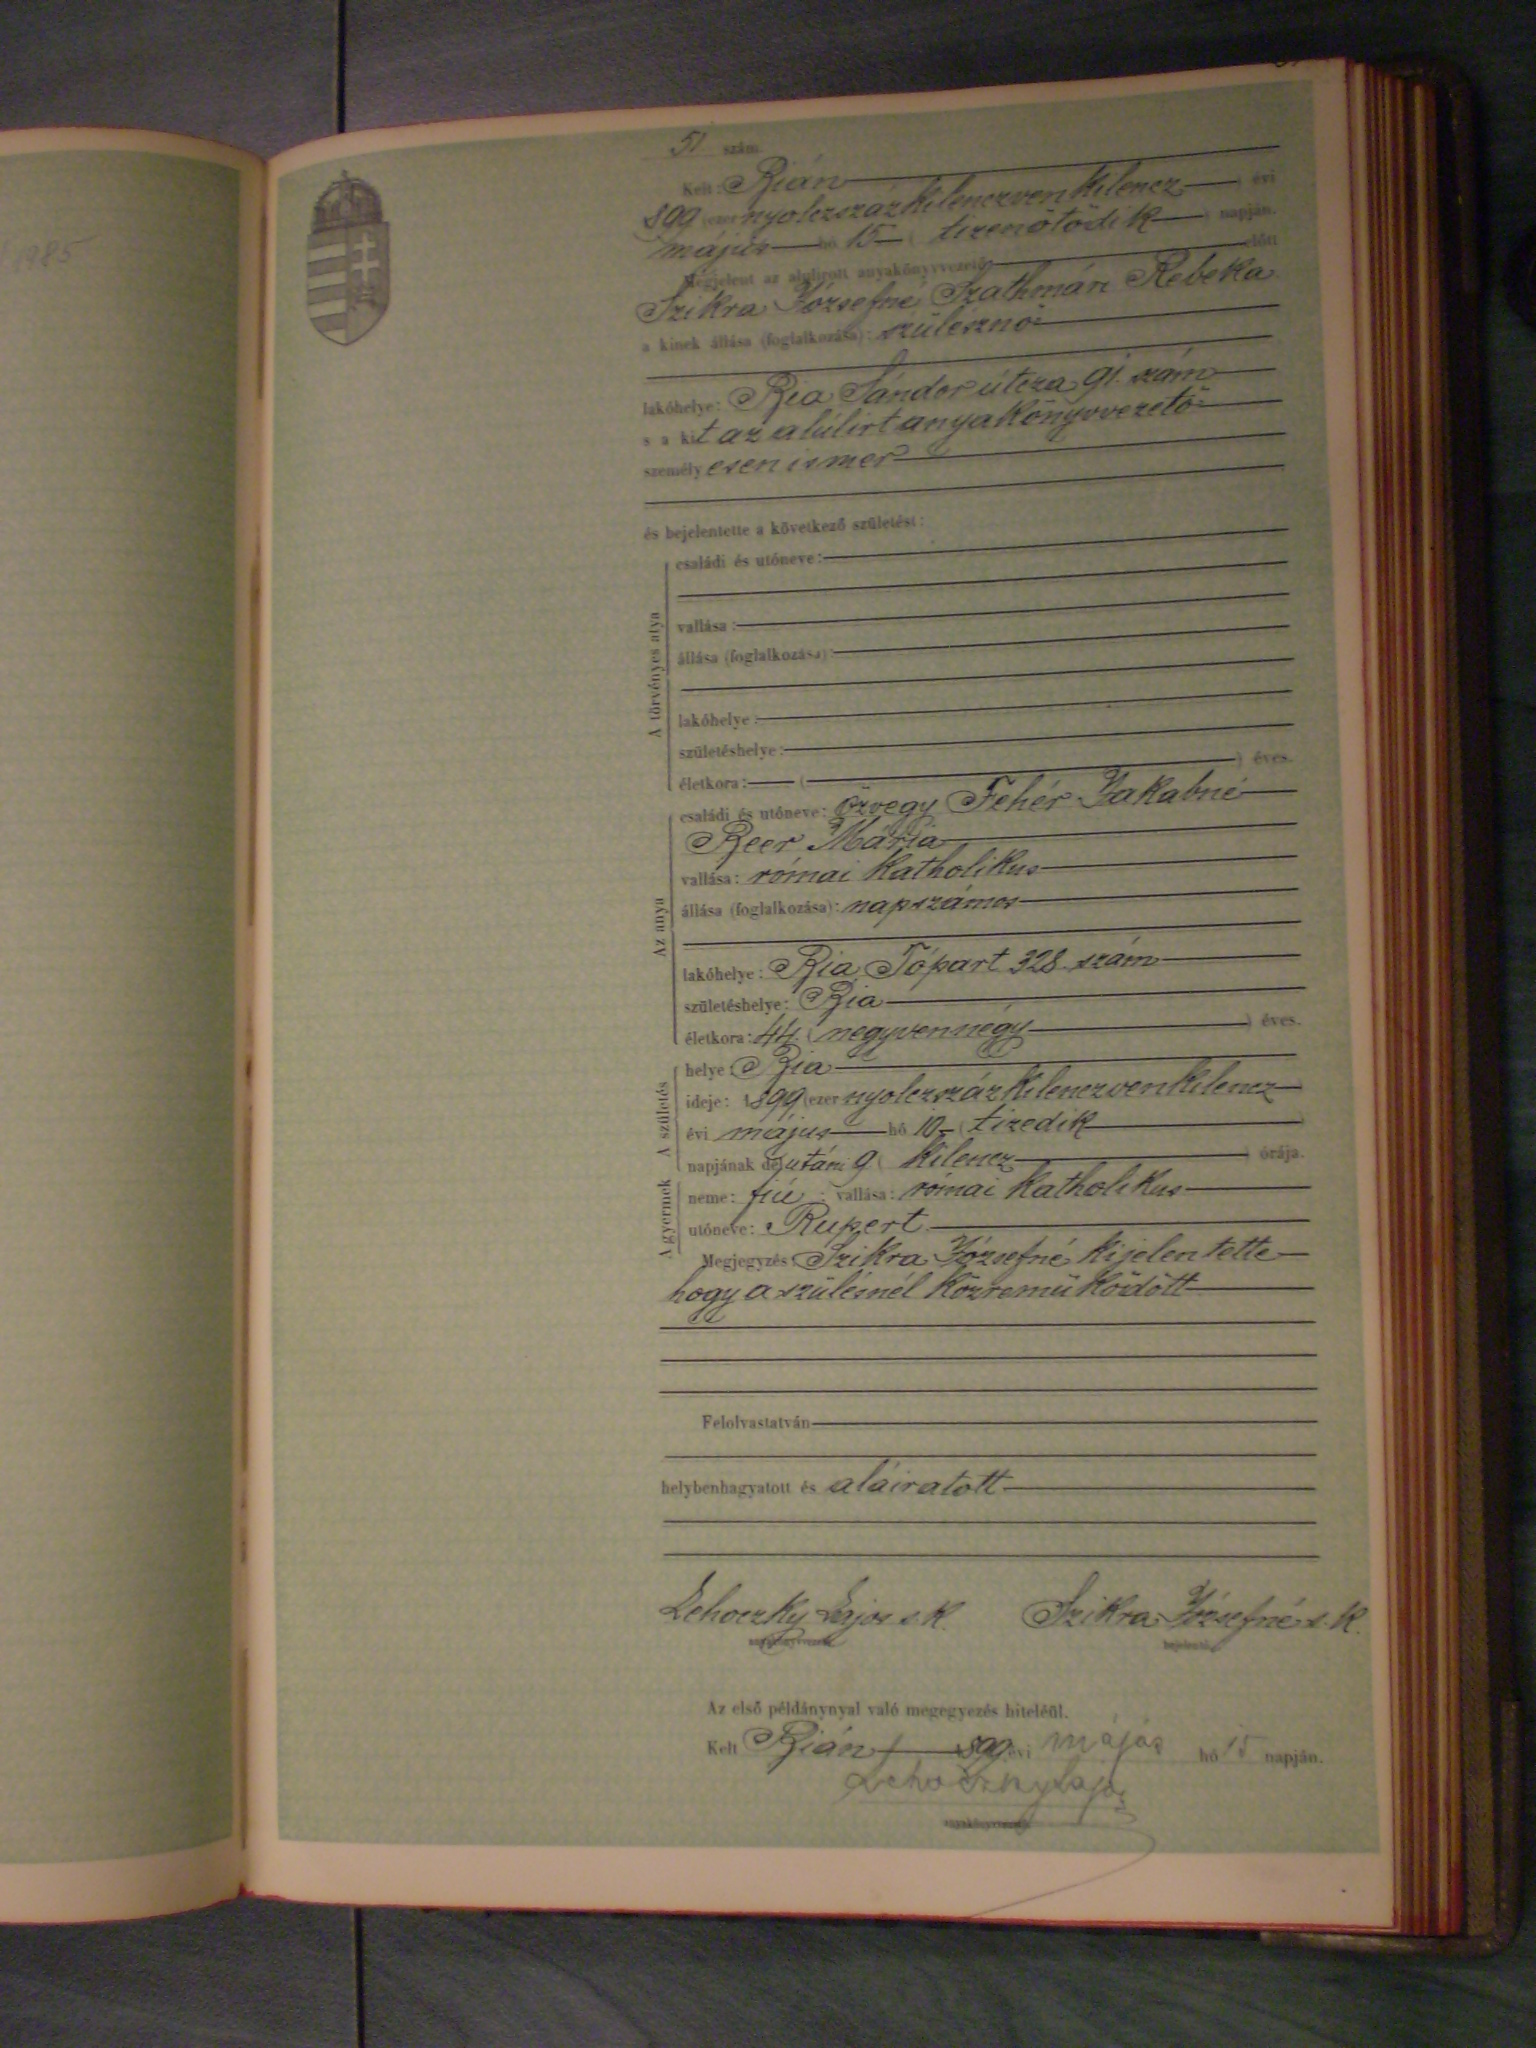 1985
51 szám.
Kelt: Bián
899 (ezer nyolczszázkilenczvenkilencz ) évi
május hó 15 ( tizenötödik ) napján.
Megjelent az alulirott anyakönyvvezető előtt
Szikra Józsefné Szathmári Rebeka
a kinek állása (foglalkozása): szülésznő
lakóhelye: Bia Sándor útcza 91. szám
s a kit az alúlirt anyakönyvvezető
személyesen ismer
és bejelentette a következő születést:
A törvényes atya
családi és utóneve:
vallása:
állása (foglalkozása):
lakóhelye:
születéshelye:
életkora: ( ) éves.
Az anya
családi és utóneve: özvegy Fehér Jakabné
Beer Mária
vallása: római katholikus
állása (foglalkozása): napszámos
lakóhelye: Bia Tópart 328. szám
születéshelye: Bia
életkora: 44 ( negyvennégy ) éves.
A születés
helye: Bia
ideje: 1899 (ezer nyolczszázkilenczvenkilencz
évi május hó 10 ( tizedik )
napjának délutáni 9 ( kilencz ) órája.
A gyermek
neme: fiú vallása: római katholikus
utóneve: Rupert
Megjegyzés: Szikra Józsefné kijelentette
hogy a szülésnél közreműködött
Felolvastatván
helybenhagyatott és aláiratott
Lehoczky Lajos s.k. Szikra Józsefné s.k.
anyakönyvvezető bejelentő
Az első példánynyal való megegyezés hiteléül.
Kelt Bián 899 évi május hó 15 napján.
Lehoczky Lajos
anyakönyvvezető